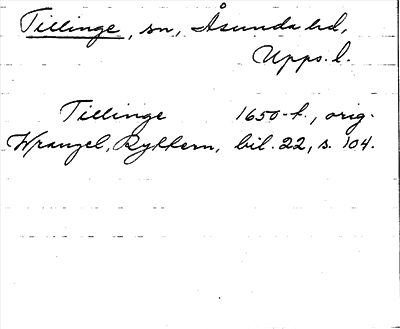 Tillinge, sn, Åsunda hd,
Upps. l.
Tillinge 1650-t., orig.
Wrangel, Ryttern, bil. 22, s. 104.